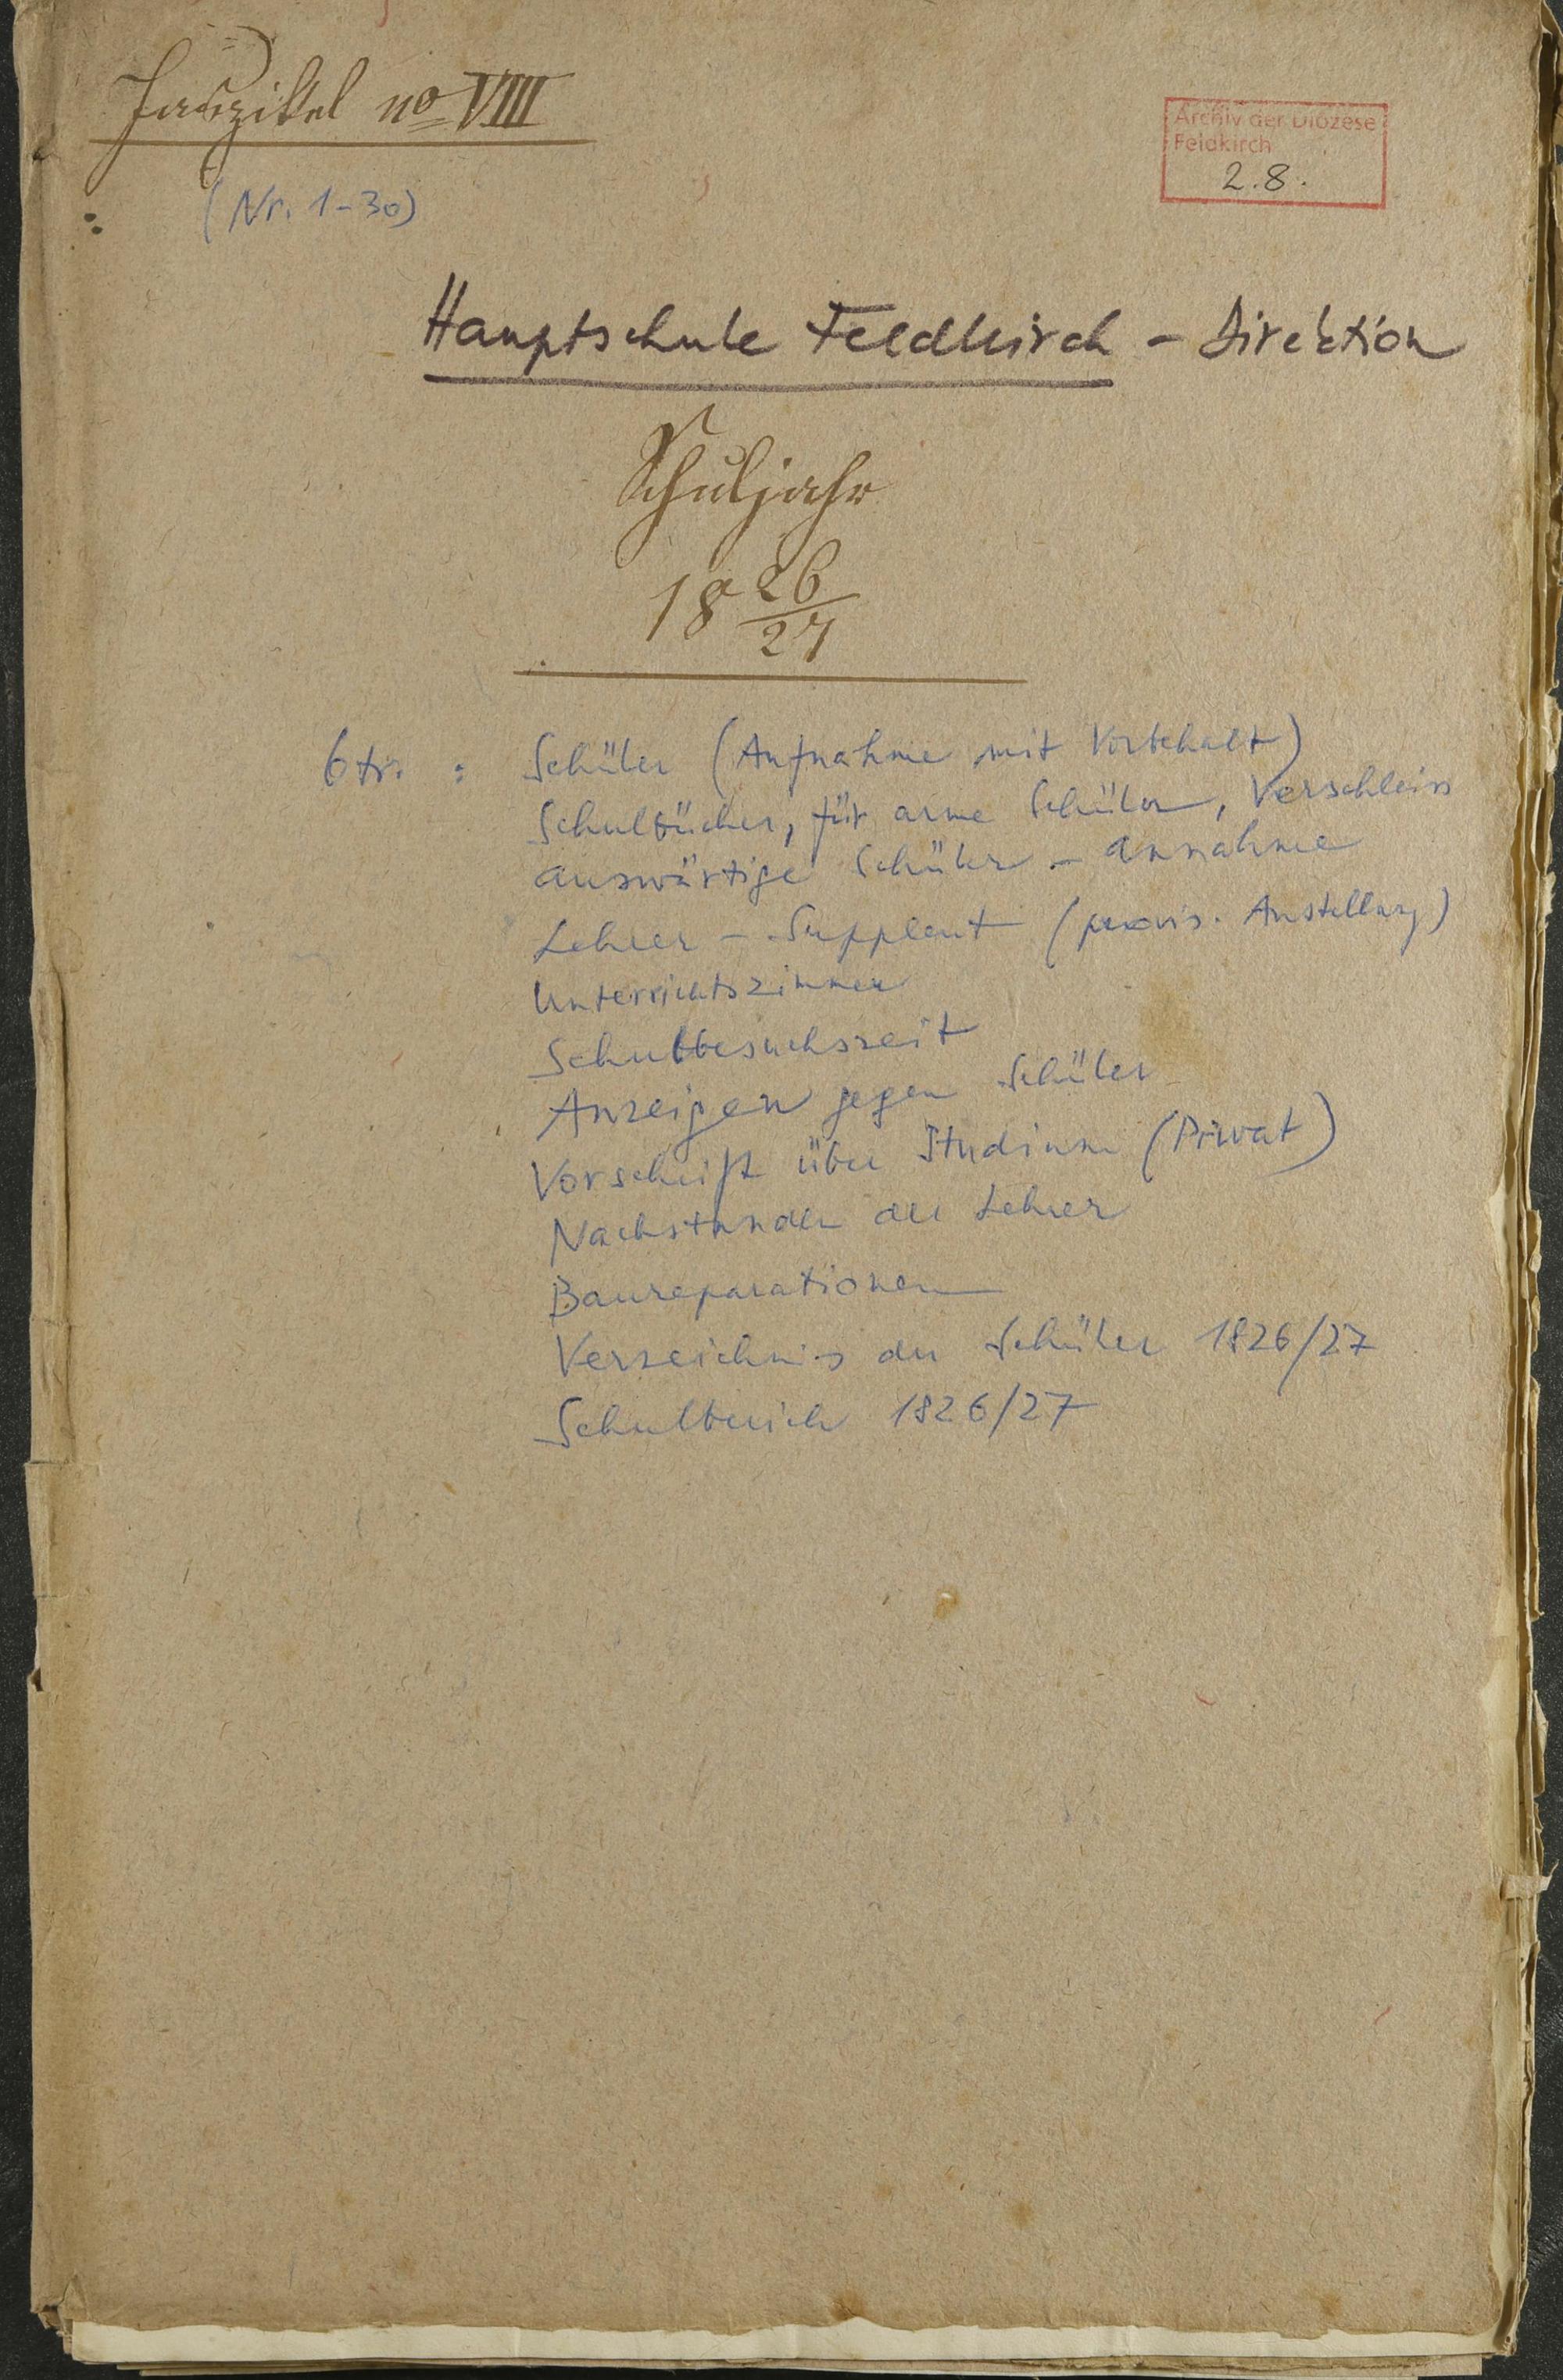 Faszikel no VIII
(Nr. 1-30)
Archiv der Diözese
Feldkirch
2.8.
Hauptschule Feldkirch - Direktion
Schuljahr
18 26/27
btr. : Schüler (Aufnahme mit Vorbehalt)
Schulbücher, für arme Schüler, Verschleiss
auswärtige Schüler - Annahme
Lehrer - Supplent (provis. Anstellung)
Unterrichtszimmer
Schulbesuchszeit
Anzeigen gegen Schüler
Vorschrift über Studium (Privat)
Nachstunden der Lehrer
Baureparationen
Verzeichnis der Schüler 1826/27
Schulberich 1826/27